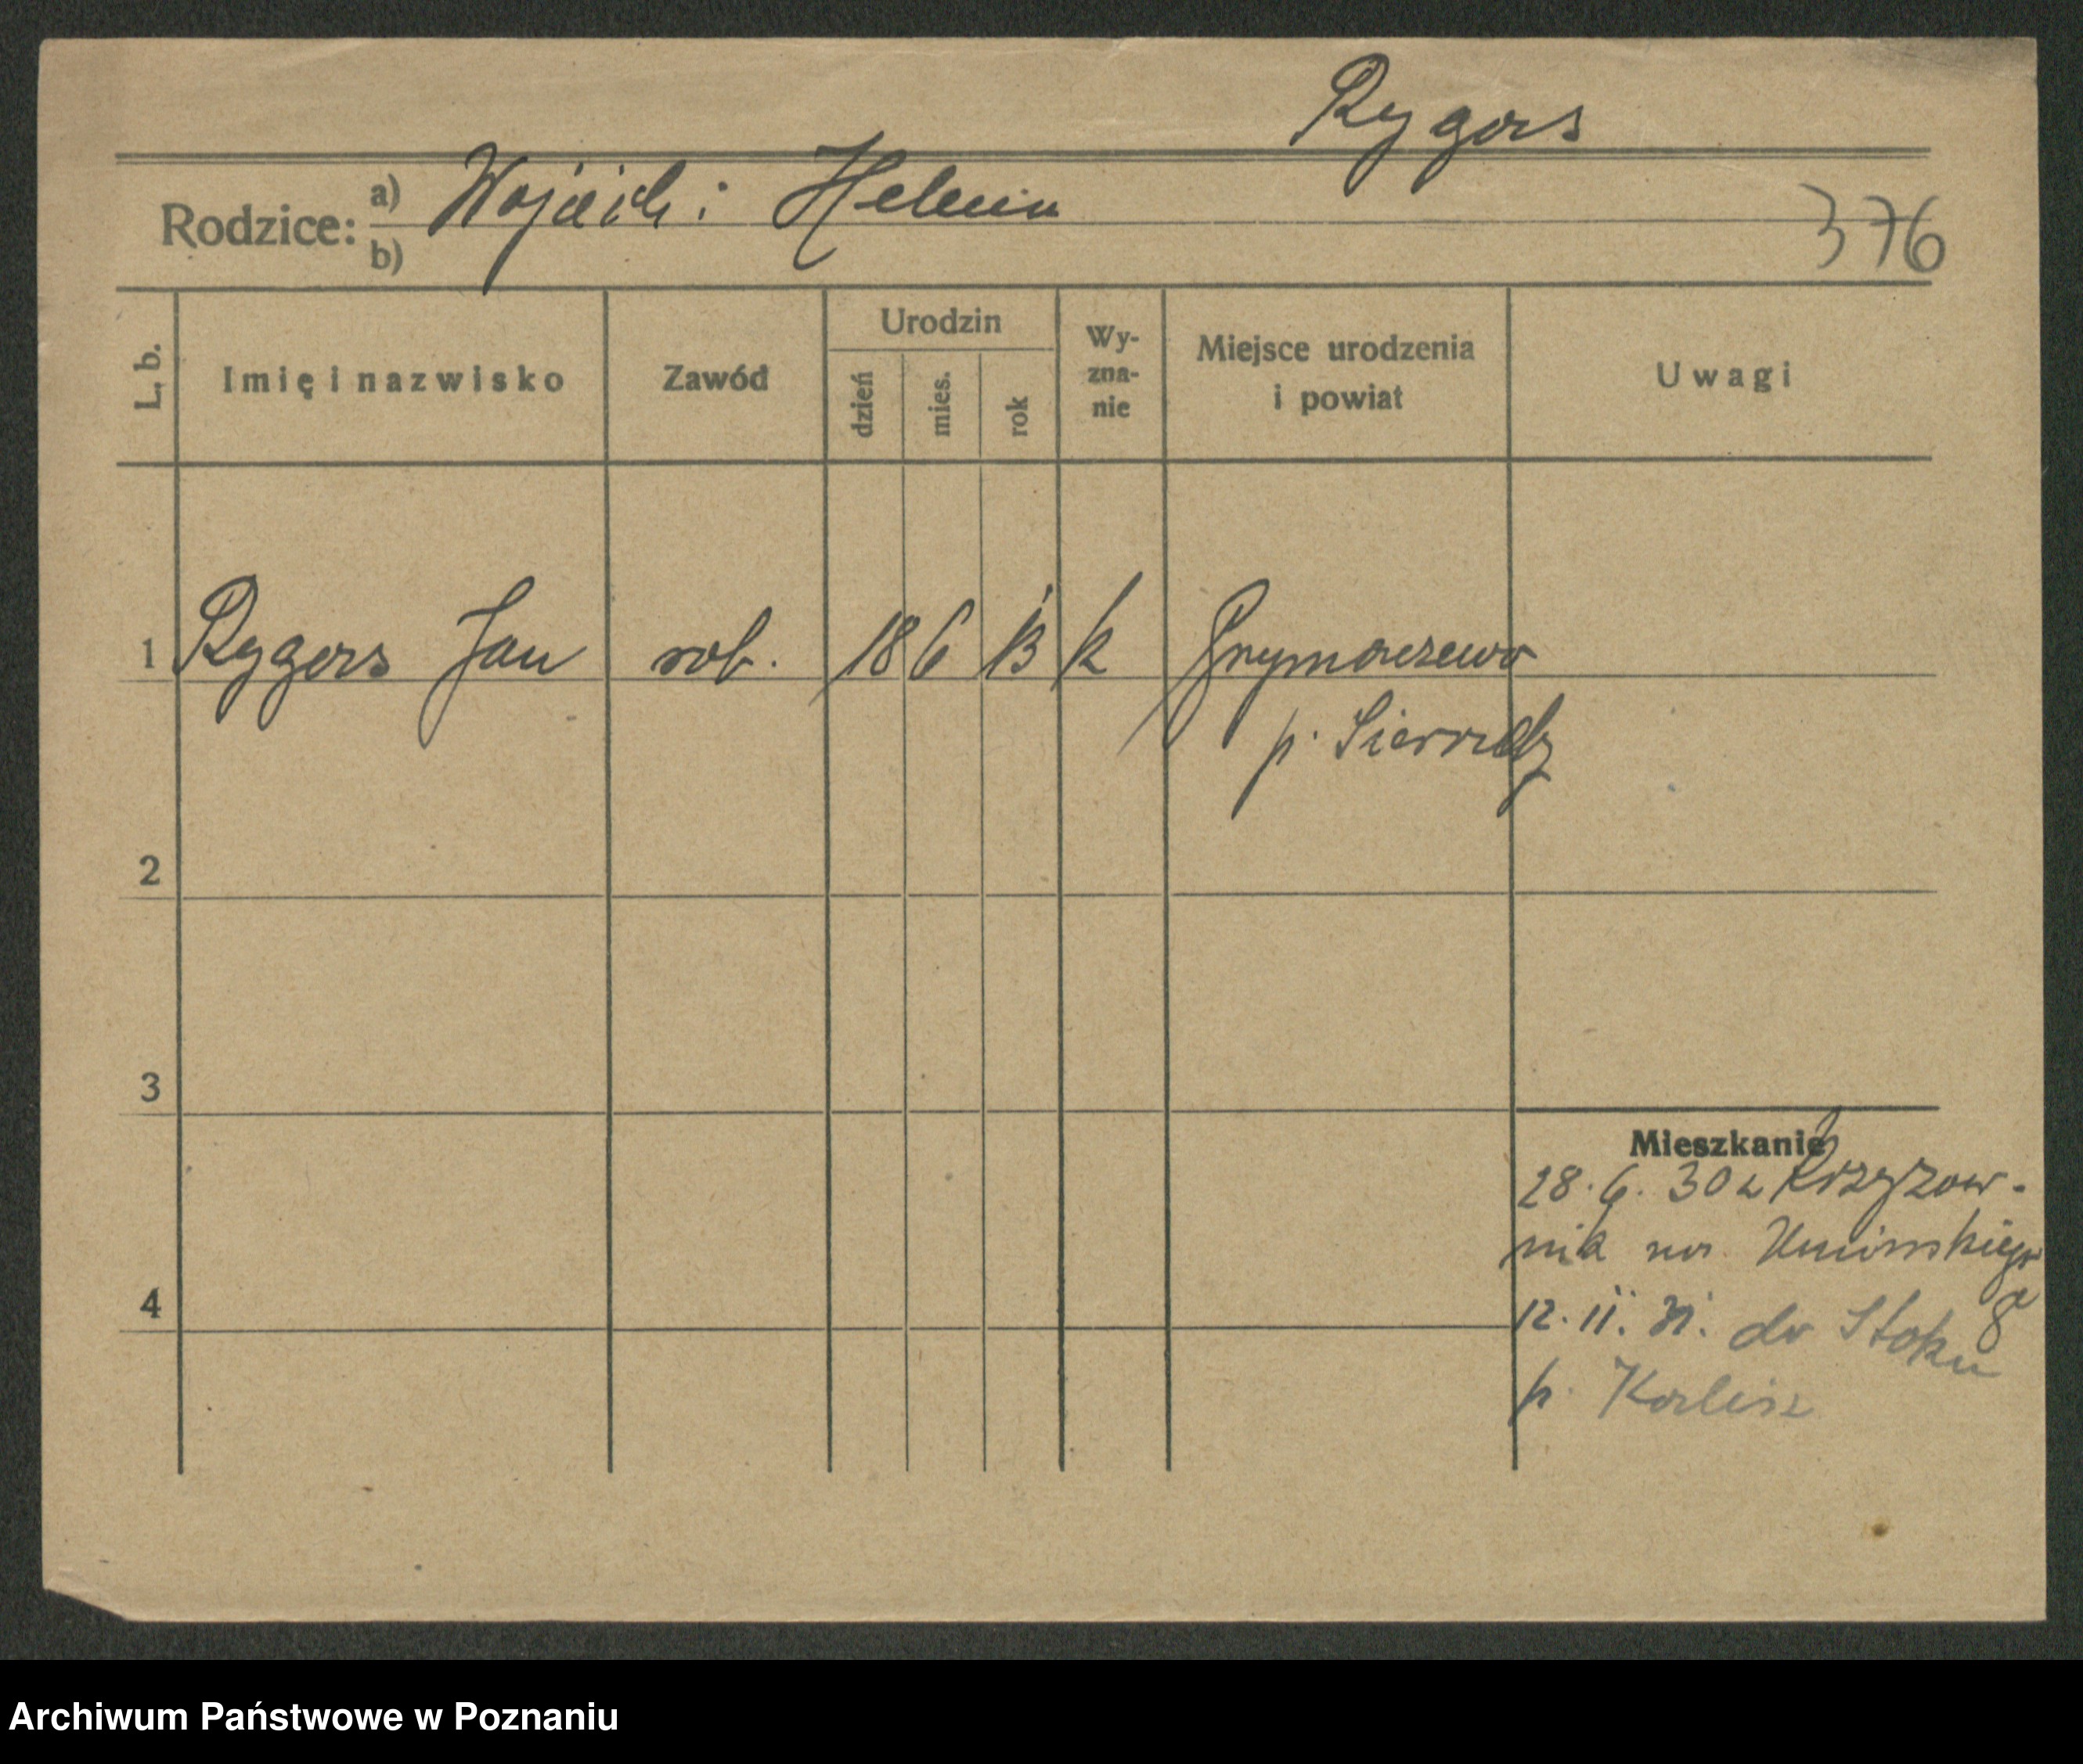 Rygors
Rodzice: a) Wojciech i Helena
b)
376
L. b. Imię i nazwisko Zawód Urodzin dzień mies. rok Wy-zna-nie Miejsce urodzenia i powiat Uwagi
1 Rygors Jan rob. 18 6 13 k
p. Sieradz
2
3
Mieszkanie
28. 6. 30 z Krzyżow-
nik na Umińskiego
8a
4
12. 11. 31. do Stoku
p. Kalisz
Archiwum Państwowe w Poznaniu